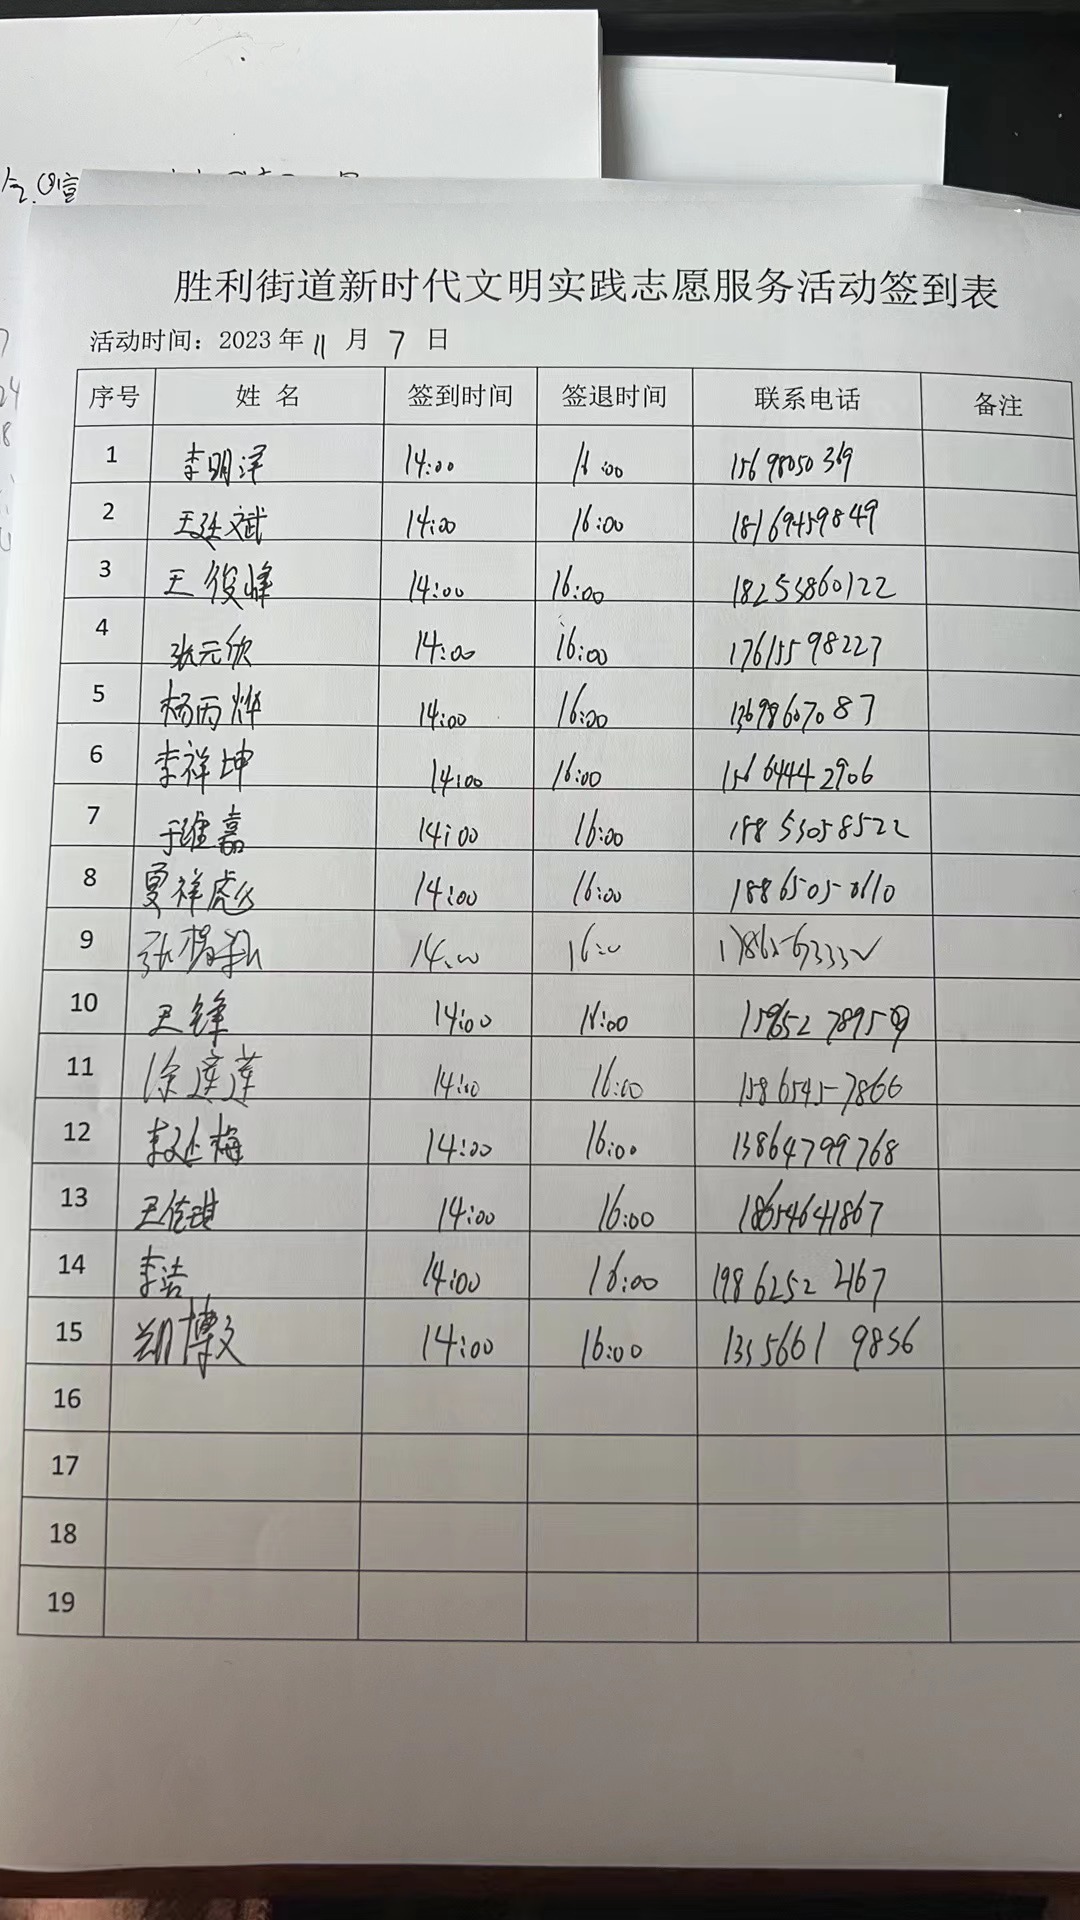 胜利街道新时代文明实践志愿服务活动签到表
活动时间：2023 年 11 月 7 日
序号 姓 名 签到时间 签退时间 联系电话 备注
1 李明泽 14:00 16:00 15698050369
2 王延斌 14:00 16:00 18169459849
3 王俊峰 14:00 16:00 18253860122
4 张元欣 14:00 16:00 17615598227
5 杨丙烨 14:00 16:00 13698607087
6 李祥坤 14:00 16:00 15664442906
7 于维嘉 14:00 16:00 18853058522
8 夏祥彪 14:00 16:00 18865050610
9 14:00 16:00
10 王锋 14:00 16:00
11 徐莲莲 14:00 16:00 15865457866
12 14:00 16:00 13864799768
13 王俊琪 14:00 16:00 18654641867
14 李洁 14:00 16:00
15 郑博文 14:00 16:00 13356619856
16
17
18
19